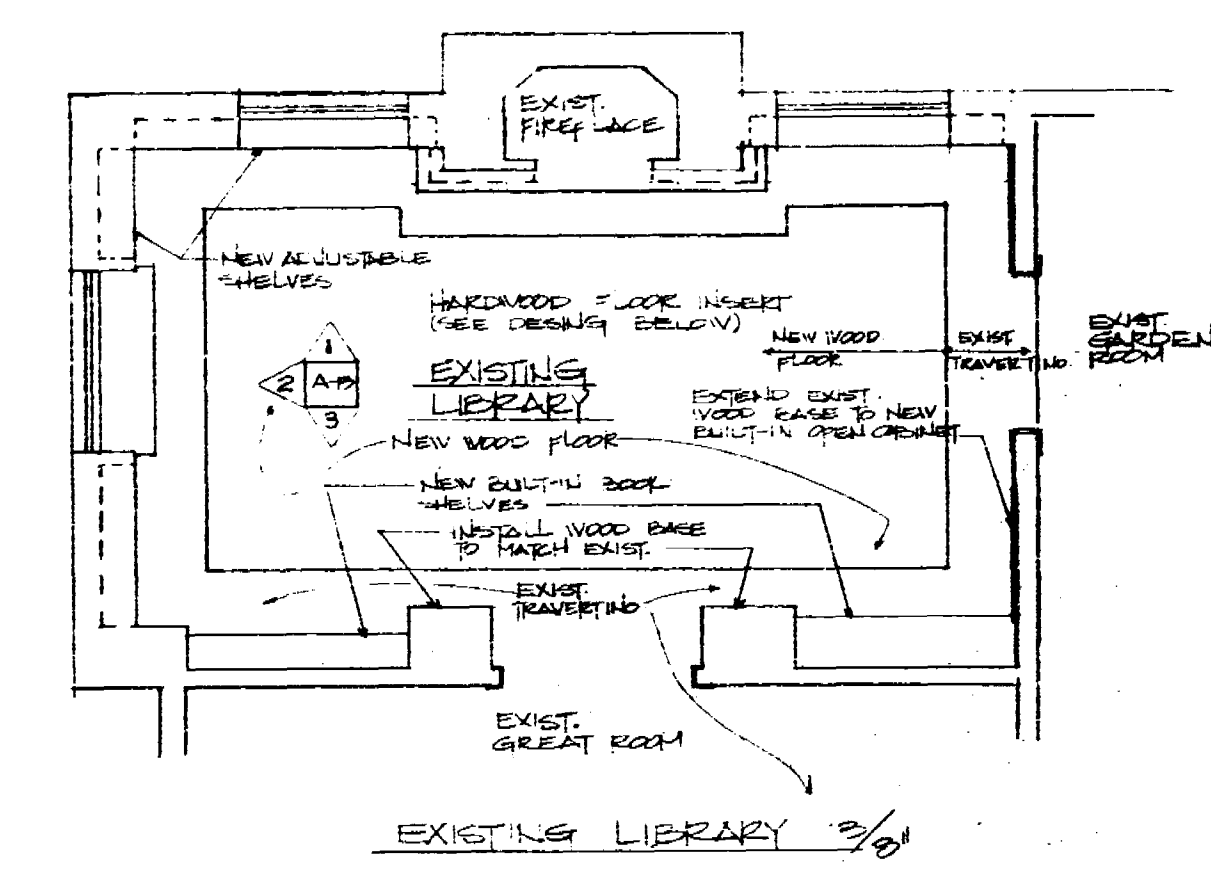 EXIST.
FIREPLACE
NEW ADJUSTABLE
SHELVES
HARDWOOD FLOOR INSERT
(SEE DESING BELOW)
NEW WOOD
FLOOR
EXIST
TRAVERTINO
EXIST.
GARDEN
ROOM
1
2
A-13
3
EXISTING
LIBRARY
EXTEND EXIST.
WOOD BASE TO NEW
BUILT-IN OPEN CABINET
NEW WOOD FLOOR
NEW BUILT-IN BOOK
SHELVES
INSTALL WOOD BASE
TO MATCH EXIST.
EXIST.
TRAVERTINO
EXIST.
GREAT ROOM
EXISTING LIBRARY 3/8"